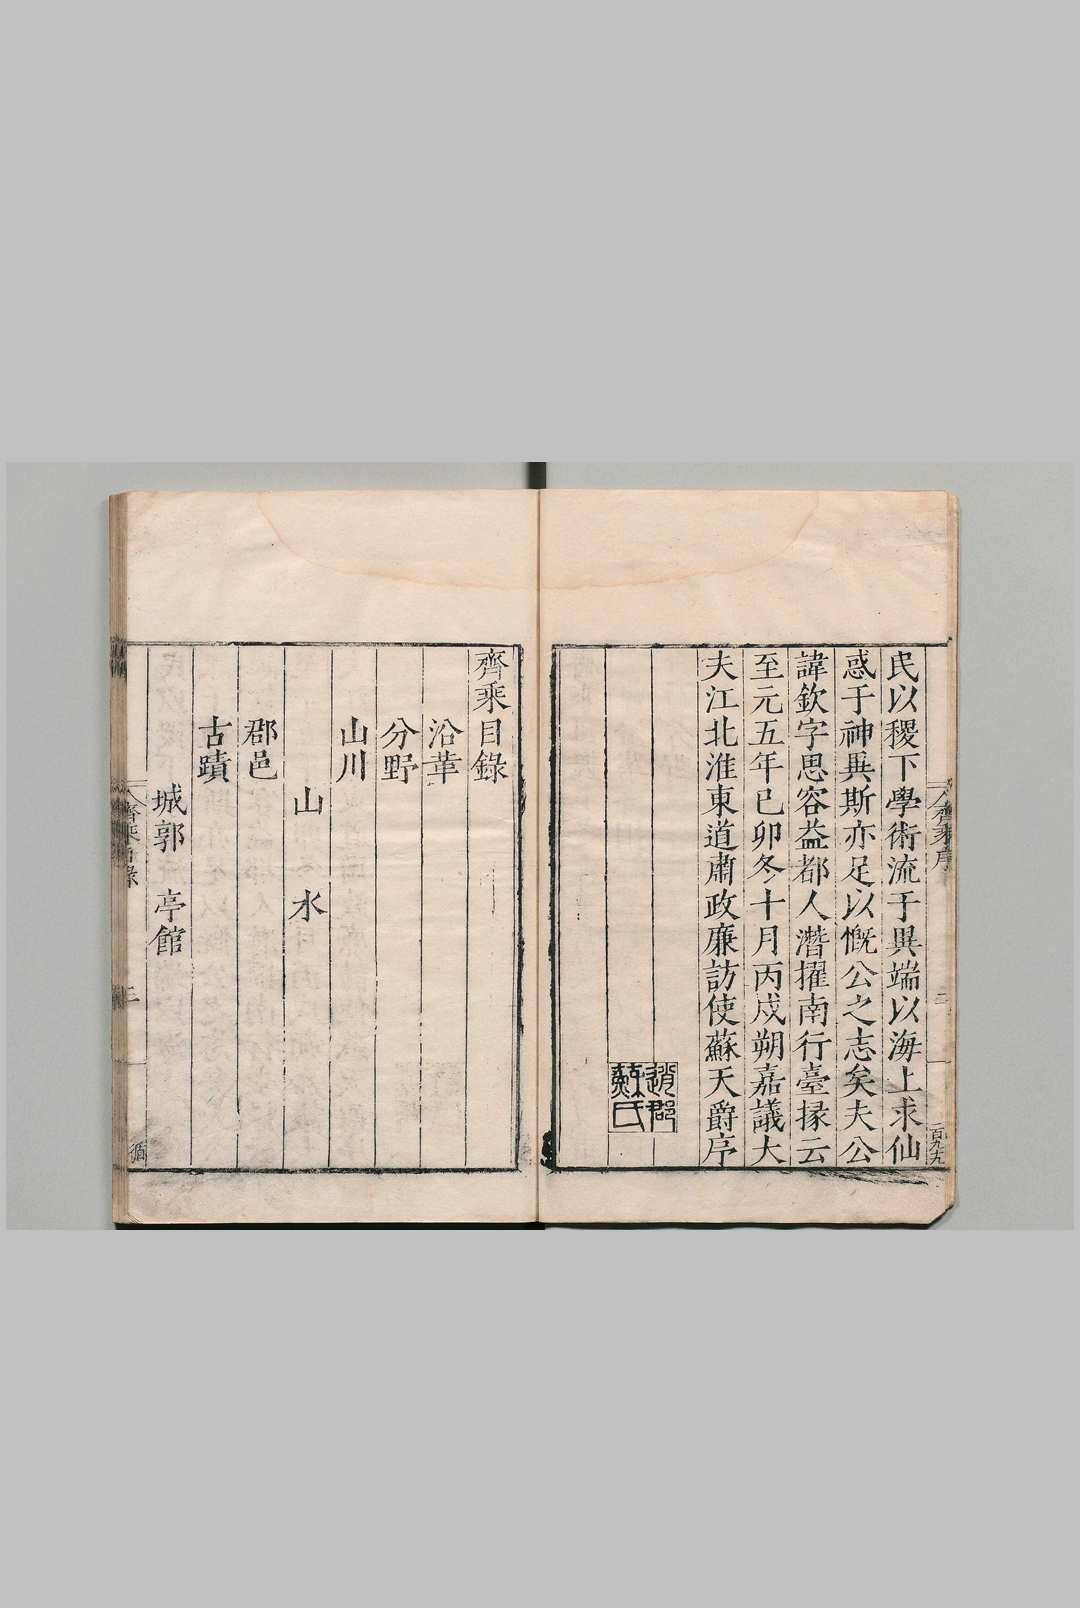 民以稷下學術流于異端以海上求仙
惑于神異斯亦足以慨公之志矣夫公
諱欽字思容益都人濳擢南行臺掾云
至元五年己卯冬十月丙戍朔嘉議大
夫江北淮東道肅政廉訪使蘇天爵序
趙郡
蘇氏
齊乘序
二百九十九
齊乘目錄
沿革
分野
山川
山　水
郡邑
古蹟
城郭　亭館
齊乘目錄